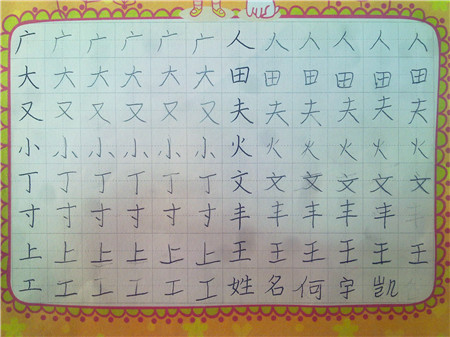 广广广广广广人人人人人人
大大大大大大田田田田田田
又又又又又又夫夫夫夫夫夫
小小小小小小火火火火火火
丁丁丁丁丁丁文文文文文文
寸寸寸寸寸寸丰丰丰丰丰丰
上上上上上上王王王王王王
工工工工工工姓名何宇凯